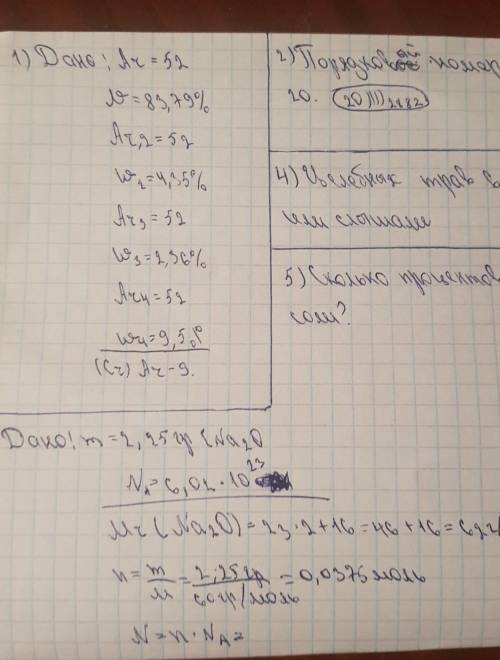 1) Дано: Ar = 52
W = 83,79%
Ar,2 = 52
W₂ = 4,35%
Ar₃ = 52
W₃ = 2,36%
Ar₄ = 52
W₄ = 9,5%
(Cr) Ar - ?
2) Порядковой номер
20. 20)))) 2882
4) Целебных трав
или слышали
5) Сколько процентов
соли?
Дано: m = 2,25 гр (Na₂O
Nₐ = 6,02 · 10²³
Mr (Na₂O) = 23 · 2 + 16 = 46 + 16 = 62 г/
n = m/M = 2,25гр/60гр/моль = 0,0375 моль
N = n · Nₐ =